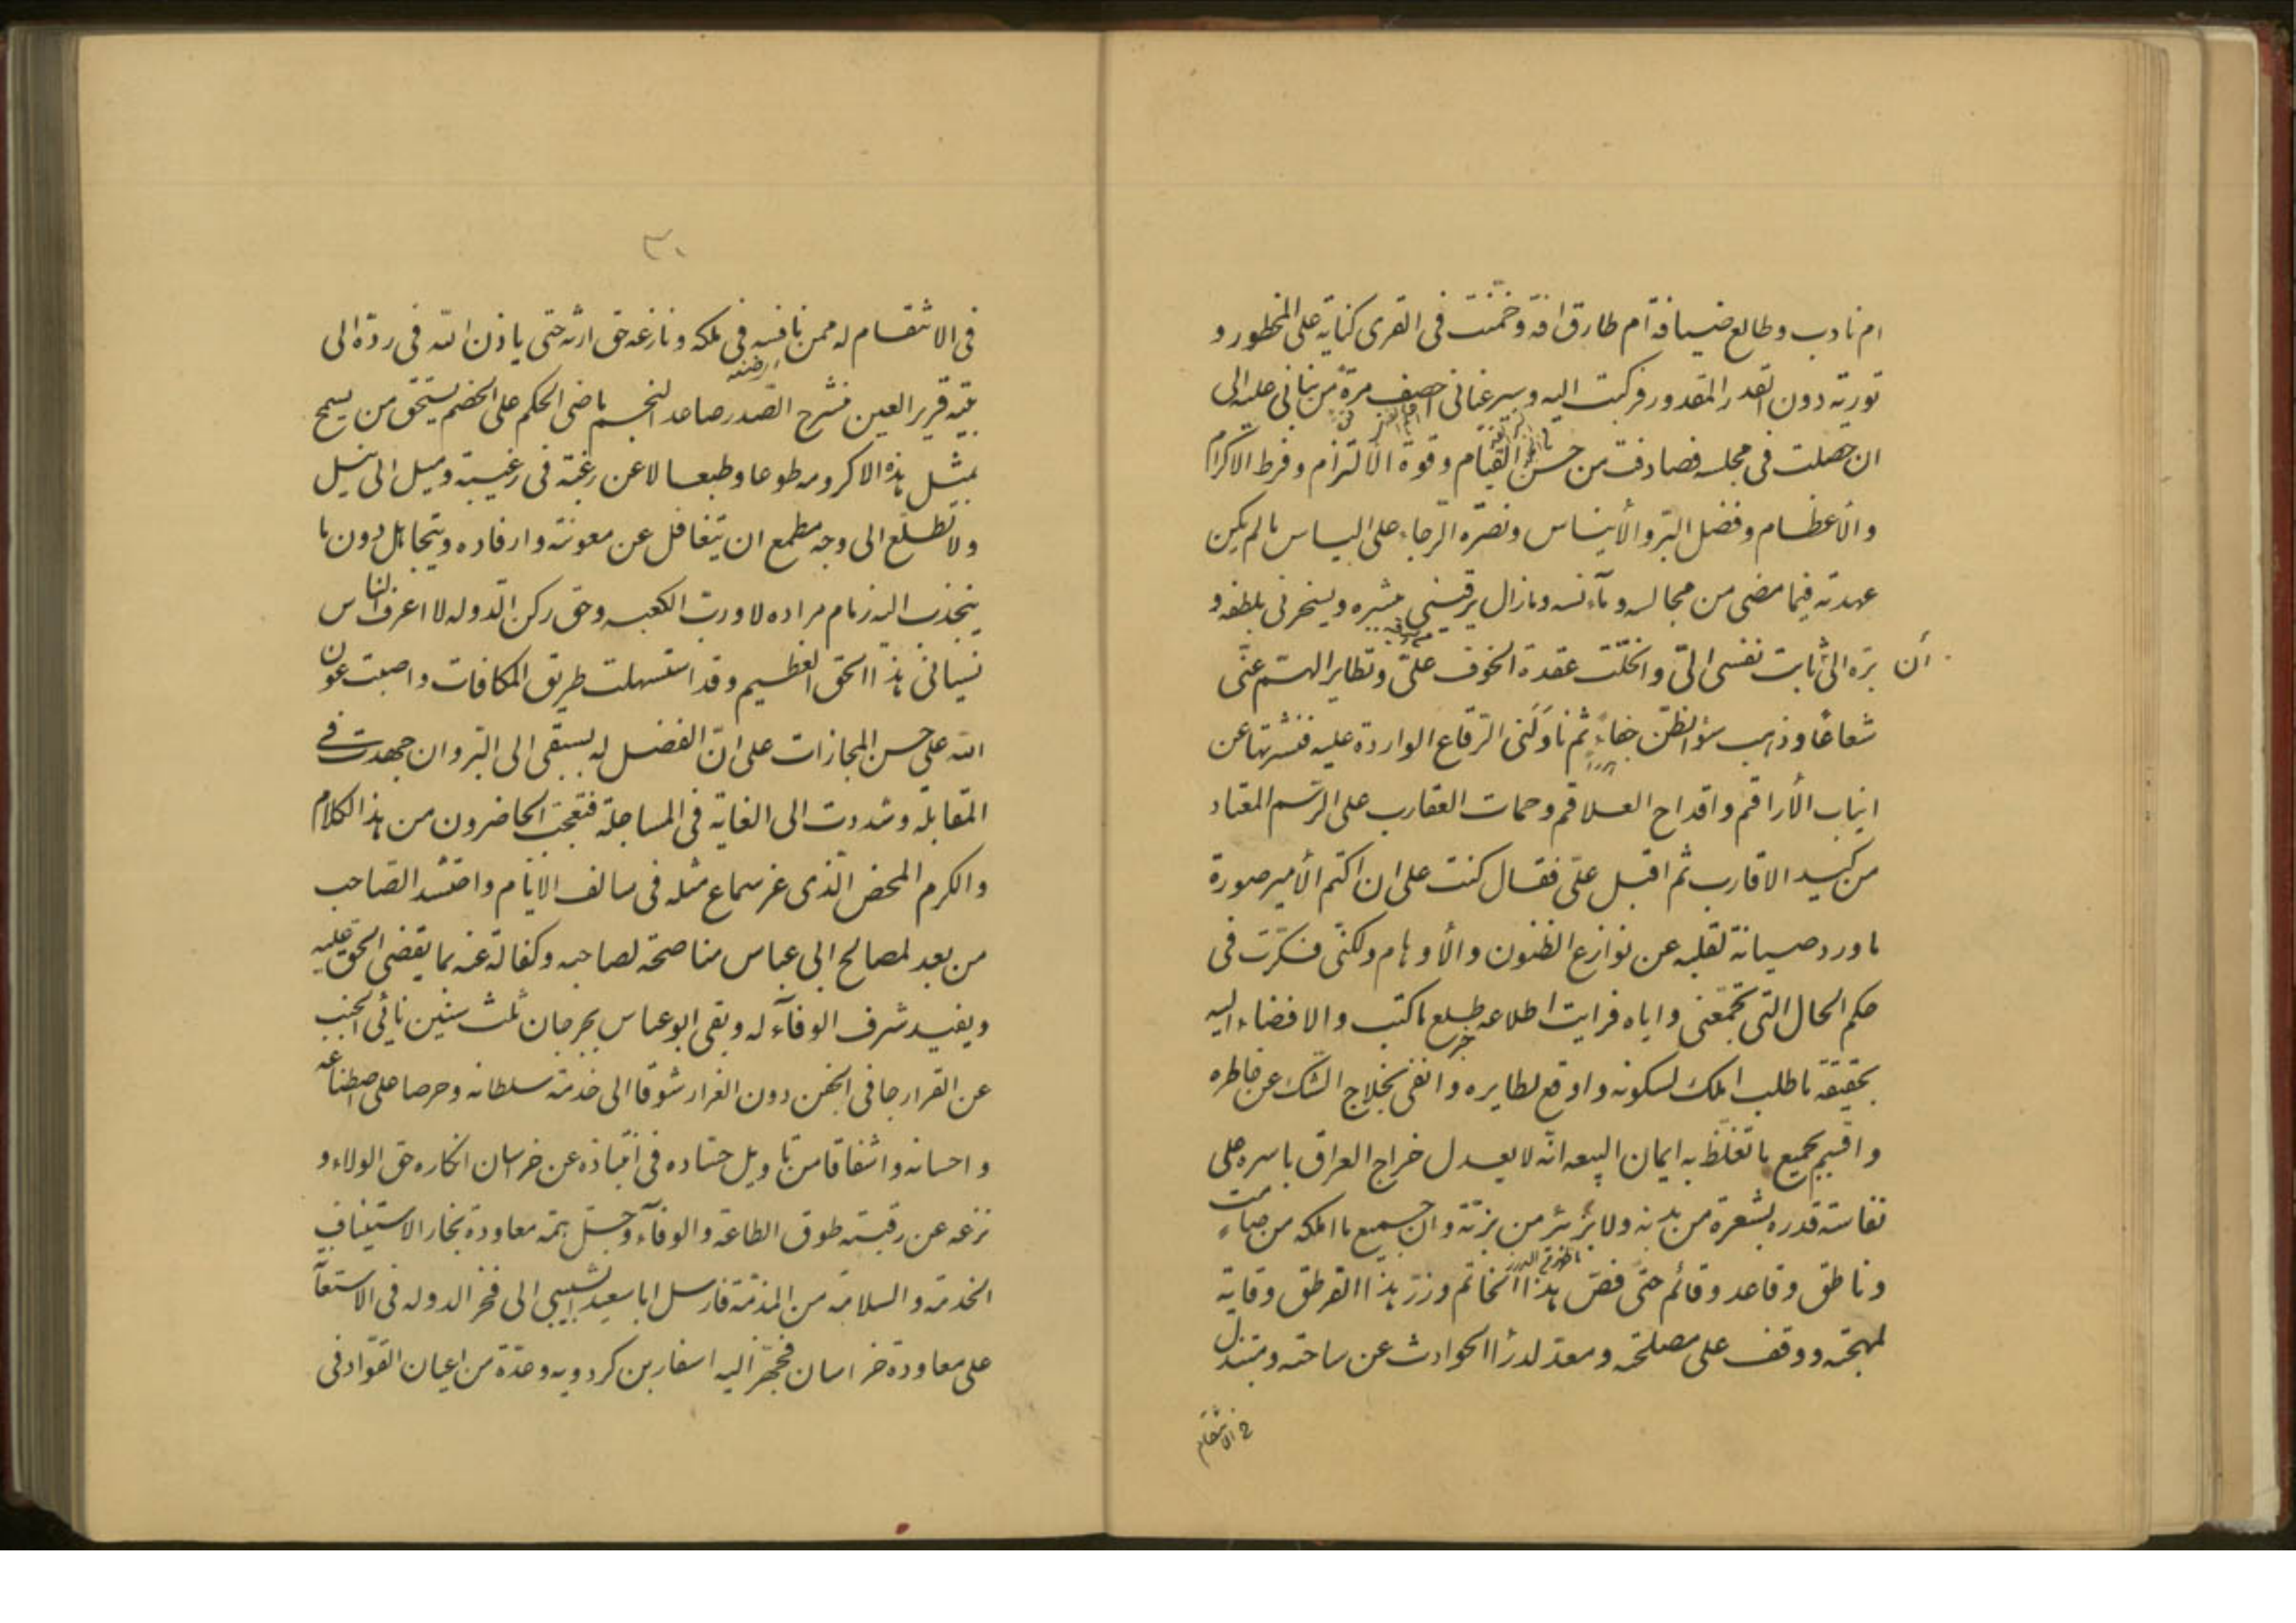 ام نادب وطالع ضيافة ام طارق افة وخمنت فى القرى كناية على المحظور و
تورية دون القدر المقدور فركبت اليه وسرعانى اخصف مرة من بنانى عليه الى
ان حصلت فى مجلسه فصادفت من حسن القيام وقوة الالتزام وفرط الاكرام
والأعظام وفضل البرّ والأيناس ونصرة الرّجاء على الياس ما لم يكن
عهدته فيما مضى من مجالسه ومآنسه ومازال يرقينى ببشره ويسخرنى بلطفه و
أن
برّه الى ثابت نفسى الىّ وانحلّت عقدة الخوف علىّ وتطاير الهتم عنّى
شعاعًا وذهب سؤ الظنّ جفاءً ثم ناولنى الرّقاع الواردة عليه فنشرتها عن
انياب الأراقم واقداح العلاقم وحمات العقارب على الرّسم المعتاد
من كيد الاقارب ثم اقبل علىّ فقال كنت على ان اكتم الأمير صورة
ما ورد صيانة لقلبه عن نوازع الظنون والأوهام ولكنّى فكرّت فى
حكم الحال التى تجمّعنى واياه فرايت اطلاعه طلع ماكتب والافضاء اليه
بحقيقة ما طلب املك لسكونه واوقع لطايره وانفى لخلاج الشّك عن خاطره
واقسم بجميع ما تغلّظ به ايمان البيعه انّه لا يعدل خراج العراق باسره على
نفاسة قدره بشعرة من بدنه ولا بزّ بئر من بزّته وان جميع ما املكه من صامت
وناطق وقاعد وقائم حتى فصّ هذا الخاتم وزرّ هذا القرطق وقاية
لمهجته ووقف على مصلحته ومعدّ لدرأ الحوادث عن ساحته ومبتذل
فى الانتقام
٣٠
فى الانتقام له ممن نافسه فى ملكه ونازعه حق ارثه حتى ياذن الله فى ردّه الى
بيته قرير العين منشرح الصّدر صاعد النجم ماضى الحكم على الخصم يستحق من يسمح
بمثل هذه الاكرومه طوعا وطبعا لا عن رغبة فى رغيبة وميل الى نيل
ولا تطلّع الى وجه مطمع ان يتغافل عن معونته وارفاده ويتجاهل دون ما
ينجذب اليه زمام مراده لا وربّ الكعبه وحق ركن الدّوله لا اعرف النّاس
نسيانى هذا الحق العظيم وقد استسهلت طريق المكافات واصبت عون
الله على حسن المجازات على انّ الفضل له بسبقى الى البرّ وان جهدت فى
المقابلة وشددت الى الغاية فى المساجلة فتعجّب الحاضرون من هذا الكلام
والكرم المحض الّذى عز سماع مثله فى سالف الايّام واحتشد الصّاحب
من بعد لمصالح ابى عباس مناصحة لصاحبه وكفالة عنه بما يقضى الحق عليه
ويفيد شرف الوفآء له وبقى ابو عباس بجرجان ثلث سنين نائى الجنب
عن القرار جافى الجفن دون الغرار شوقا الى خدمة سلطانه وحرصا على اصطناعه
واحسانه واشفاقا من تاويل حسّاده فى انتباذه عن خراسان انكاره حق الولاء و
نزعه عن رقبته طوق الطاعة والوفآء وجلّ همّه معاودة بخارا لاستيناف
الخدمة والسلامة من المذمّة فارسل ابا سعيد الشبيبى الى فخر الدوله فى الاستعآ
على معاودة خراسان فجهّز اليه اسفار بن كردويه وعدّة من اعيان القوّاد فى